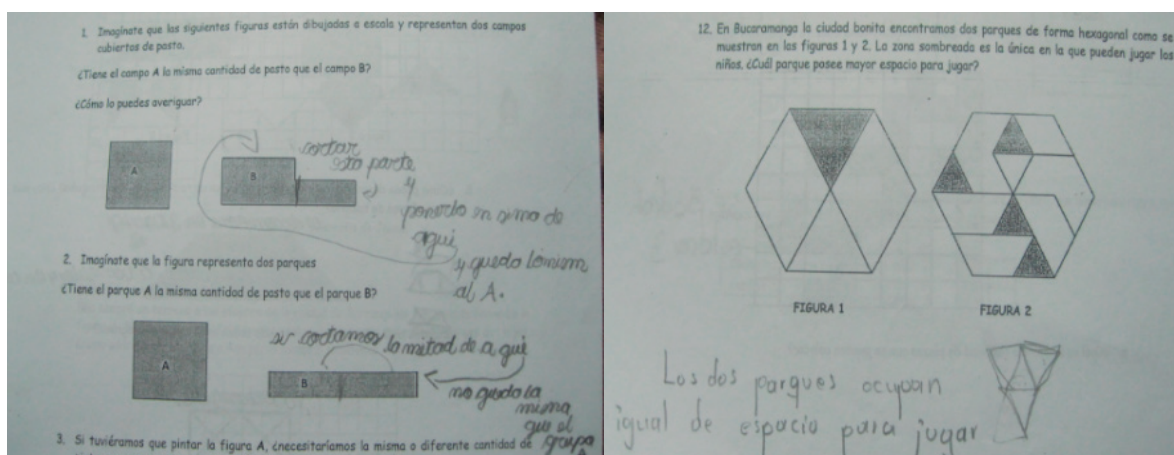 1. Imagínate que las siguientes figuras están dibujadas a escala y representan dos campos
cubiertos de pasto.
¿Tiene el campo A la misma cantidad de pasto que el campo B?
¿Cómo lo puedes averiguar?
A
B
cortar
esta parte
y
ponerla en sima de
aqui
y queda la
al A.
2. Imagínate que la figura representa dos parques
¿Tiene el parque A la misma cantidad de pasto que el parque B?
A
B
si cortamos la mitad de a qui
no queda la
misma
que el
3. Si tuviéramos que pintar la figura A, ¿necesitaríamos la misma o diferente cantidad de
12. En Bucaramanga la ciudad bonita encontramos dos parques de forma hexagonal como se
muestran en las figuras 1 y 2. La zona sombreada es la única en la que pueden jugar los
niños. ¿Cuál parque posee mayor espacio para jugar?
FIGURA 1
FIGURA 2
Los dos parques ocupan
igual de espacio para jugar